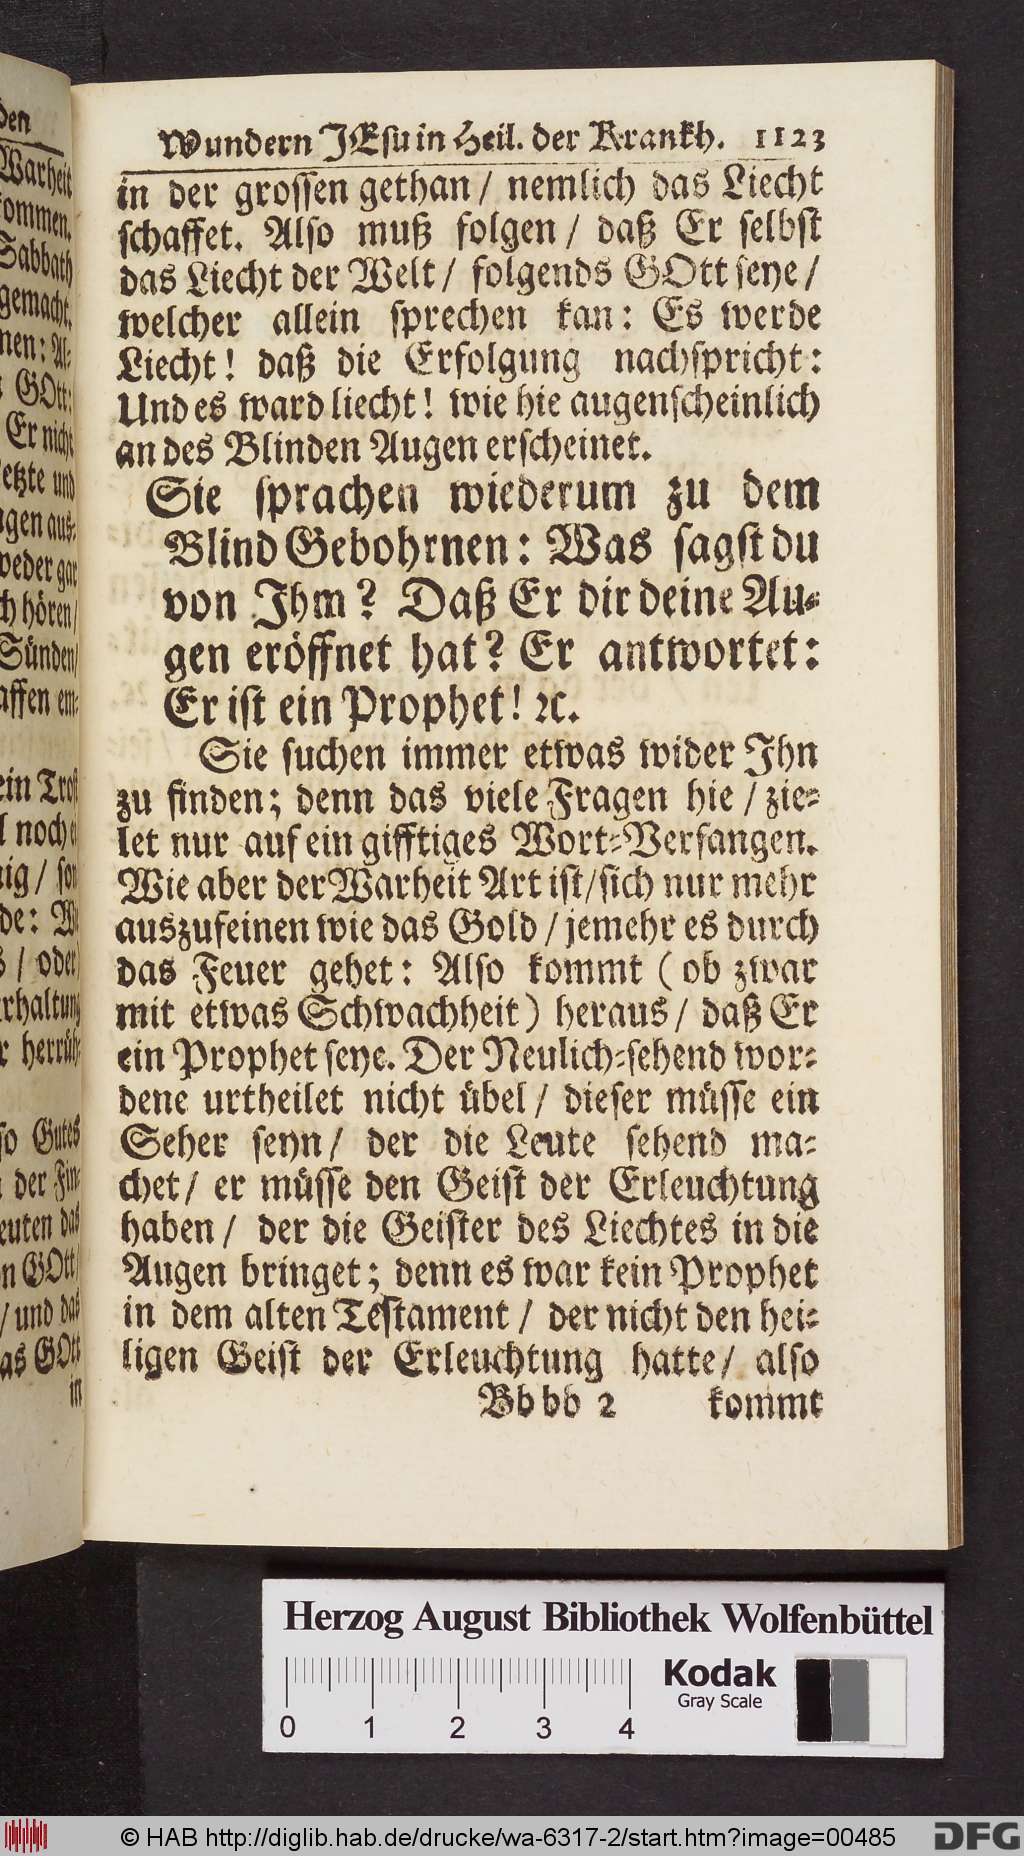 den
Warheit
kommen.
Sabbath
gemacht.
nen: Al-
GOtt:
Er nicht
etzte und
gen aus-
weder gar
ch hören/
Sünden/
affen em-
ein Trost
l noch
nig/
de:
s / oder
erhaltung
r herrüh-
so Gutes
der Fin-
euten das
n GOtt/
/ und das
as GOtt
in
Wundern JEsu in Heil. der Krankh. 1123
in der grossen gethan / nemlich das Liecht
schaffet. Also muß folgen / daß Er selbst
das Liecht der Welt / folgends GOtt seye /
welcher allein sprechen kan: Es werde
Liecht! daß die Erfolgung nachspricht:
Und es ward liecht! wie hie augenscheinlich
an des Blinden Augen erscheinet.
Sie sprachen wiederum zu dem
Blind Gebohrnen: Was sagst du
von Ihm? Daß Er dir deine Au-
gen eröffnet hat? Er antwortet:
Er ist ein Prophet! ꝛc.
Sie suchen immer etwas wider Ihn
zu finden; denn das viele Fragen hie / zie-
let nur auf ein gifftiges Wort-Verfangen.
Wie aber der Warheit Art ist / sich nur mehr
auszufeinen wie das Gold / jemehr es durch
das Feuer gehet: Also kommt ( ob zwar
mit etwas Schwachheit ) heraus / daß Er
ein Prophet seye. Der Neulich-sehend wor-
dene urtheilet nicht übel / dieser müsse ein
Seher seyn / der die Leute sehend ma-
chet / er müsse den Geist der Erleuchtung
haben / der die Geister des Liechtes in die
Augen bringet; denn es war kein Prophet
in dem alten Testament / der nicht den hei-
ligen Geist der Erleuchtung hatte / also
Bb bb 2 kommt
Herzog August Bibliothek Wolfenbüttel
Kodak
Gray Scale
0 1 2 3 4
© HAB http://diglib.hab.de/drucke/wa-6317-2/start.htm?image=00485
DFG